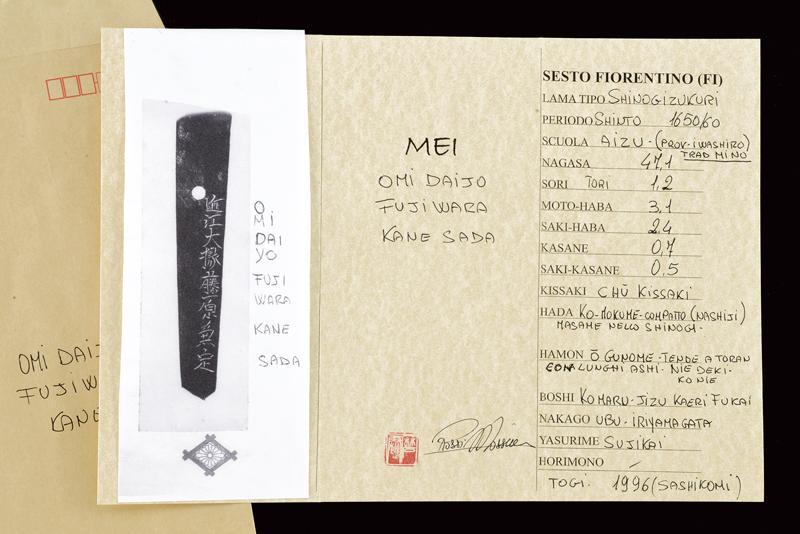 OMI DAIJ
FUJIW
KANE
近江大掾藤原兼定
O
MI
DAI
YO
FUJI
WARA
KANE
SADA
MEI
OMI DAIJO
FUJIWARA
KANE SADA
SESTO FIORENTINO (FI)
LAMA TIPO SHINOGIZUKURI
PERIODO SHINTO 1650/60
SCUOLA AIZU - (PROV. IWASHIRO)
TRAD MINO
NAGASA 47,1
SORI TORI 1,2
MOTO-HABA 3,1
SAKI-HABA 2,4
KASANE 0,7
SAKI-KASANE 0,5
KISSAKI CHŪ KISSAKI
HADA KO-MOKUME-COMPATTO (NASHIJI)
MASAME NELLO SHINOGI-
HAMON Ō GUNOME-TENDE A TORAN
CON LUNGHI ASHI. NIE DEKI-
KO NIE
BOSHI KOMARU-JIZU KAERI FUKAI
NAKAGO UBU-IRIYAMAGATA
YASURIME SUJIKAI
HORIMONO /
TOGI. 1996 (SASHIKOMI)